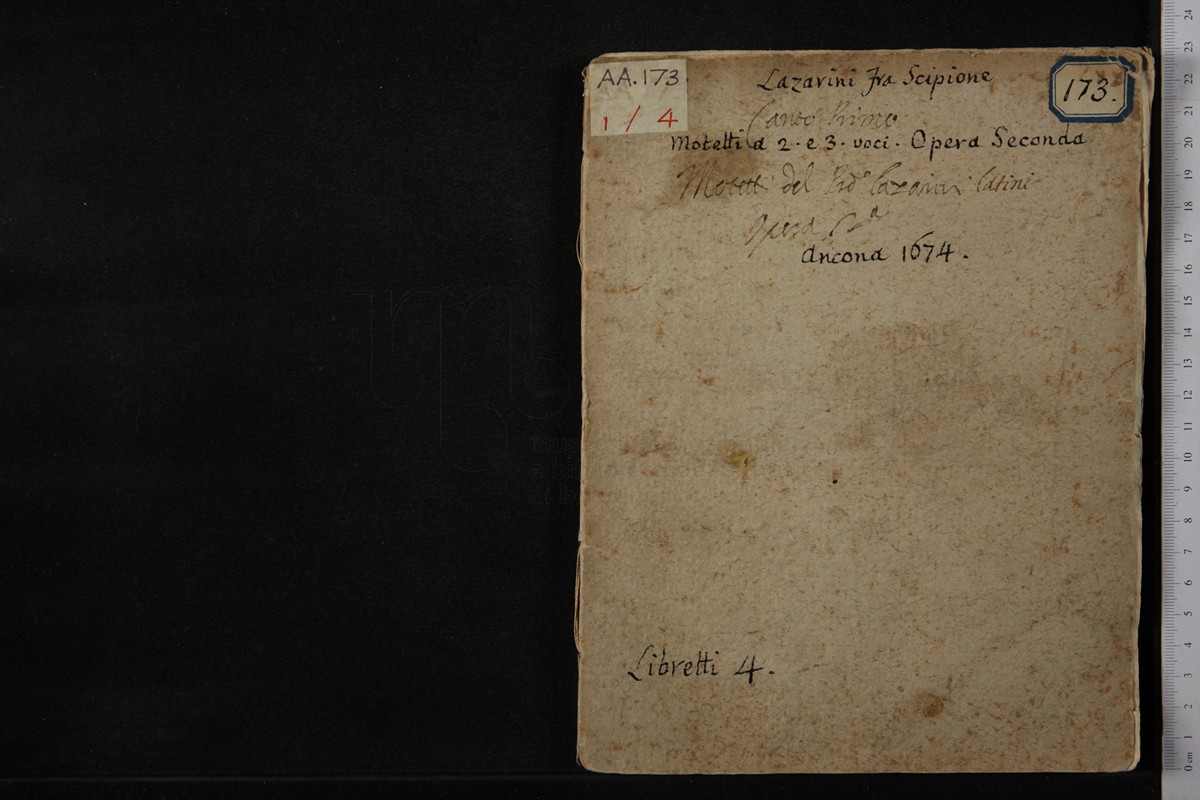 AA.173
1 / 4
173.
Lazarini Fra Scipione
Canto Primo
Motetti a 2. e 3. voci. Opera Seconda
Motetti del Lazarini latini
Opera 2ᵃ
Ancona 1674.
Libretti 4.
24
23
22
21
20
19
18
17
16
15
14
13
12
11
10
9
8
7
6
5
4
3
2
1
0 cm